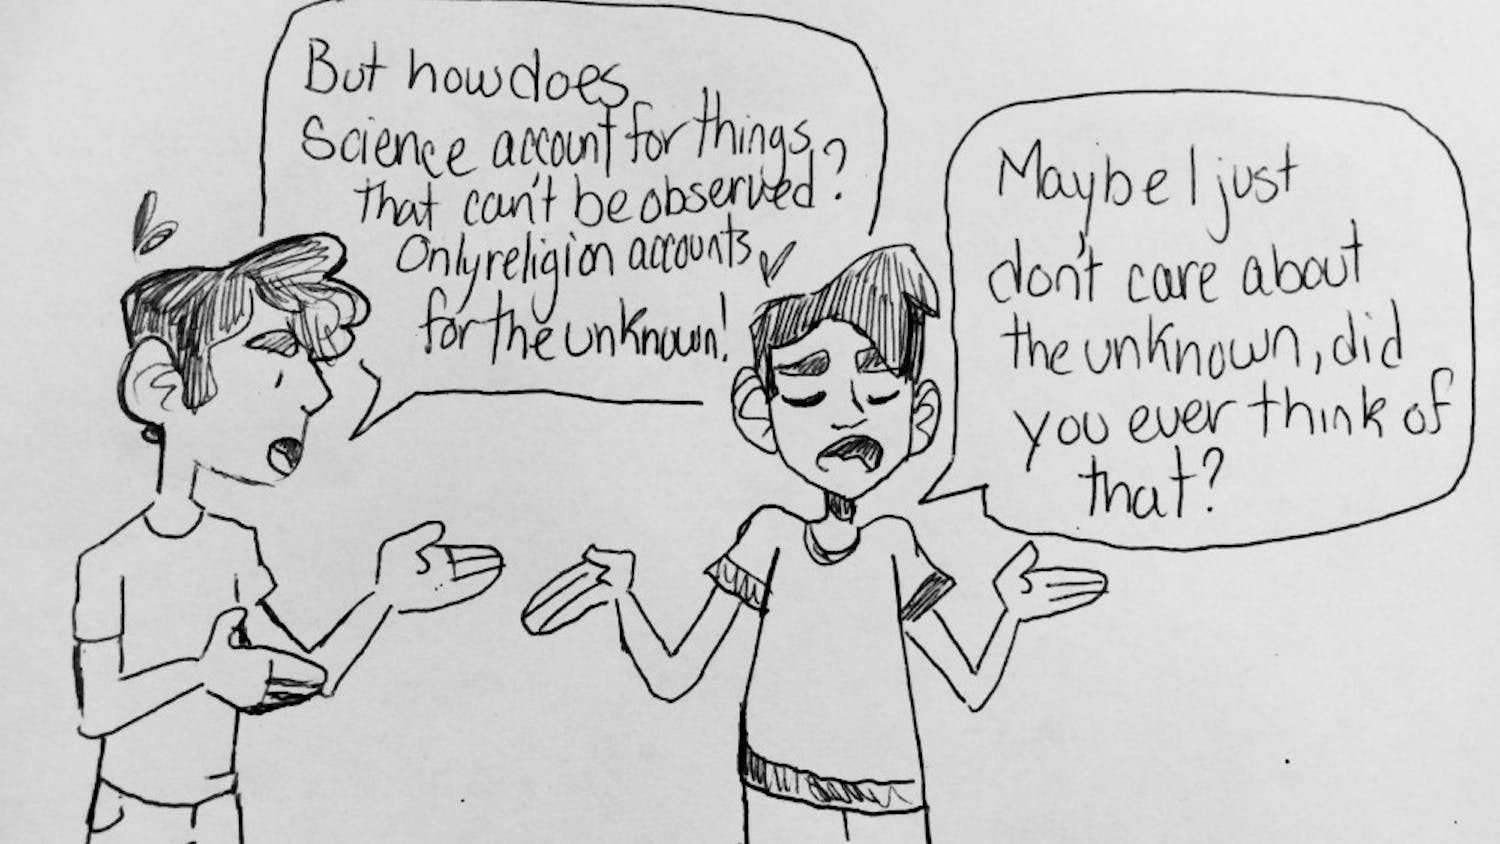 But how does
Science account for things
that can't be observed?
Only religion accounts
for the unknown!
Maybe I just
don't care about
the unknown, did
you ever think of
that?